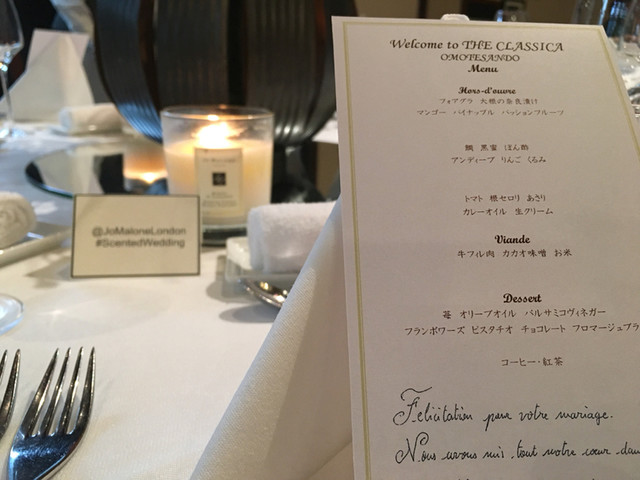 Welcome to THE CLASSICA
OMOTESANDO
Menu
Hors-d'ouvre
フォアグラ 大根の奈良漬け
マンゴー パイナップル パッションフルーツ
鯛 黒蜜 ぽん酢
アンディーブ りんご くるみ
トマト 根セロリ あさり
カレーオイル 生クリーム
Viande
牛フィレ肉 カカオ味噌 お米
Dessert
苺 オリーブオイル バルサミコヴィネガー
フランボワーズ ピスタチオ チョコレート フロマージュブラ
コーヒー・紅茶
Felicitation pour votre mariage.
Nous avons mis tout notre cœur dans
@JoMaloneLondon
#ScentedWedding
JO MALONE